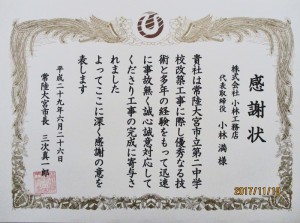 感謝状
株式会社 小林工務店
代表取締役 小林 満 様
貴社は常陸大宮市立第二中学
校改築工事に際し優秀なる技
術と多年の経験をもって迅速
に事故無く誠心誠意対応して
くださり工事の完成に寄与さ
れました
よってここに深く感謝の意を
表します
平成二十九年六月二十六日
常陸大宮市長 三次真一郎